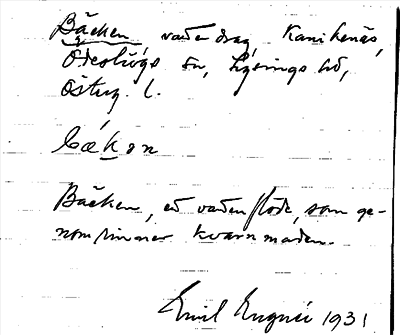 Bäcken, vattendrag, Kanikenäs,
Ödeshögs sn, Lysings hd,
Östug. l.
bækən
Bäcken, ett vattenflöde, som ge-
nomrinner kvarnmaden.
Emil 1931